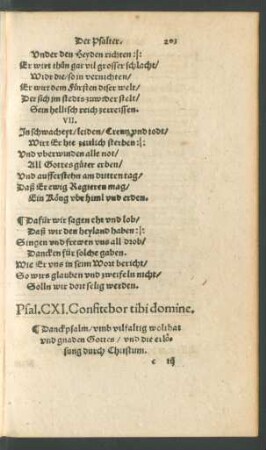 Der Psalter. 203
Vnder den Heyden richten :|:
Er wirt thůn gar vil grosser schlacht/
Widr die/ so in vernichten/
Er wirt dem Fürsten diser welt/
Der sich jm stedts zuwider stelt/
Sein hellisch reich zerreissen.
VII.
In schwacheyt/ leiden/ Creutz vnd todt/
Wirt Er hie zeitlich sterben :|:
Vnd vberwinden alle not/
All Gottes güter erben/
Vnd aufferstehn am dritten tag/
Daß Er ewig Regieren mag/
Ein König vbr himl vnd erden.
¶ Dafür wir sagen ehr vnd lob/
Daß wir den heyland haben :|:
Singen vnd frewen vns all drob/
Dancken für solche gaben.
Wie Er vns in seim Wort bericht/
So wirs glauben vnd zweifeln nicht/
Solln wir dort selig werden.
Psal. CXI. Confitebor tibi domine.
¶ Danckpsalm/ vmb vilfaltig wolthat
vnd gnaden Gottes/ vnd die erlö-
sung durch Christum.